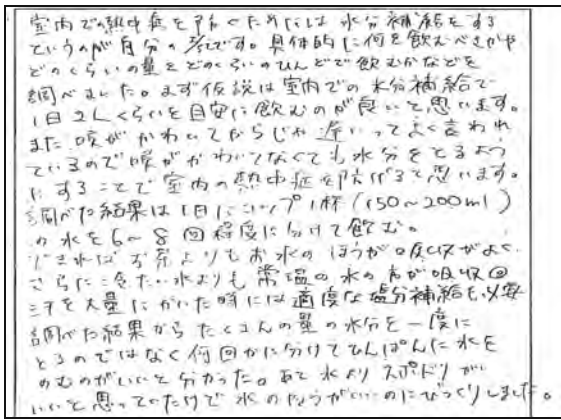 室内での熱中症を防ぐためには水分補給をする
というのが自分の です。具体的に何を飲むべきかや
どのくらいの量をどのくらいのひんどで飲むかなどを
調べました。まず仮説は室内での水分補給で
1日2Lくらいを目安に飲むのが良いと思います。
また咳がかわいてからじゃ遅いってよく言われ
ているので咳がかわいてなくても水分をとるよう
にすることで室内の熱中症を防げると思います。
調べた結果は1日にコップ1杯(150~200ml)
の水を6~8回程度に分けて飲む。
できればお茶よりもお水のほうが吸収がよく、
さらに冷たい水よりも常温の水の方が吸収
汗を大量にかいた時には適度な塩分補給も必要
調べた結果からたくさんの量の水分を一度に
とるのではなく何回かに分けてひんぱんに水を
のむのがいいと分かった。あと水よりスポドリがい
いいと思っていたけで水のほうがいいのにびっくりしました。